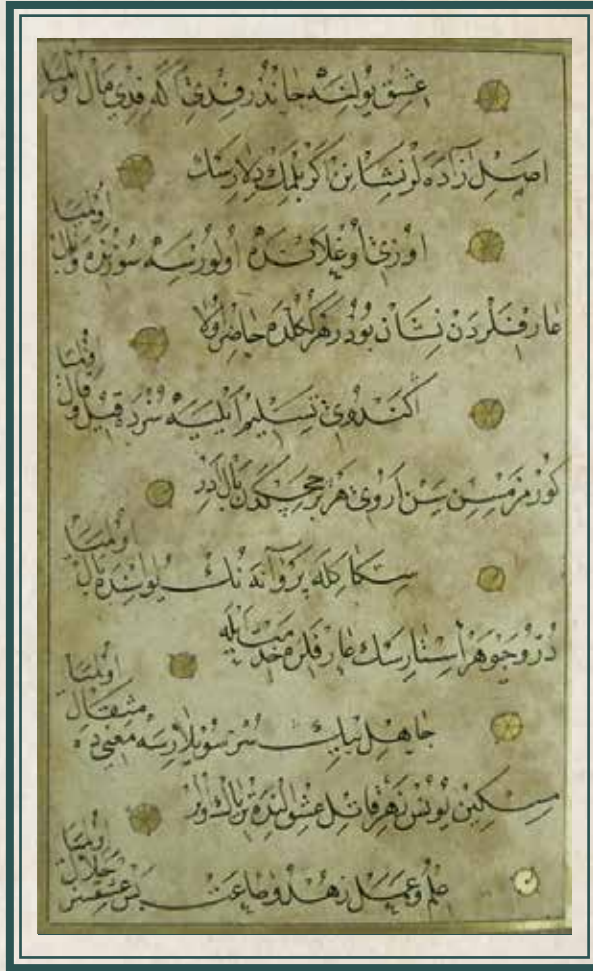 عشق يولنده جاندر فدي مال اولميا
اصل زاده لر نشانن كر بلمك ديلرسك
اوزي اوغلانده اولورسه سوزنده وبال اولميا
عارفلردن نشان بودر هر كلده حاضر اولا
كندوي تسليم ايليه سوزده قيل و قال اولميا
كورمزمسن سن اروي هر بر چچكدن بال ادر
سكك ايله پروانه نك يولنده بال اولميا
در و جوهر استارسك عارفلره خدمت ايله
جاهل بيك سوز سويلارسه معنيده مثقال اولميا
مسكين يونس زهر قاتل عشق الندە ترياك اولر
علم و عمل زهد و طاعت بس عشقسز حلال اولميا